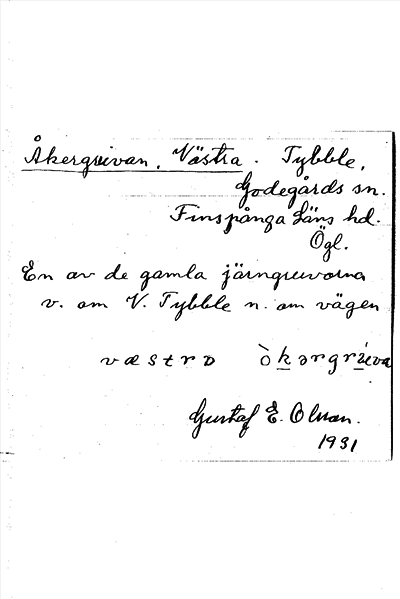 Åkergruvan, Västra. Tybble,
Godegårds sn.
Finspånga Läns hd.
Ögl.
En av de gamla järngruvorna
v. om V. Tybble n. om vägen
væstra òkərgrúva
Gustaf E. Olsson.
1931